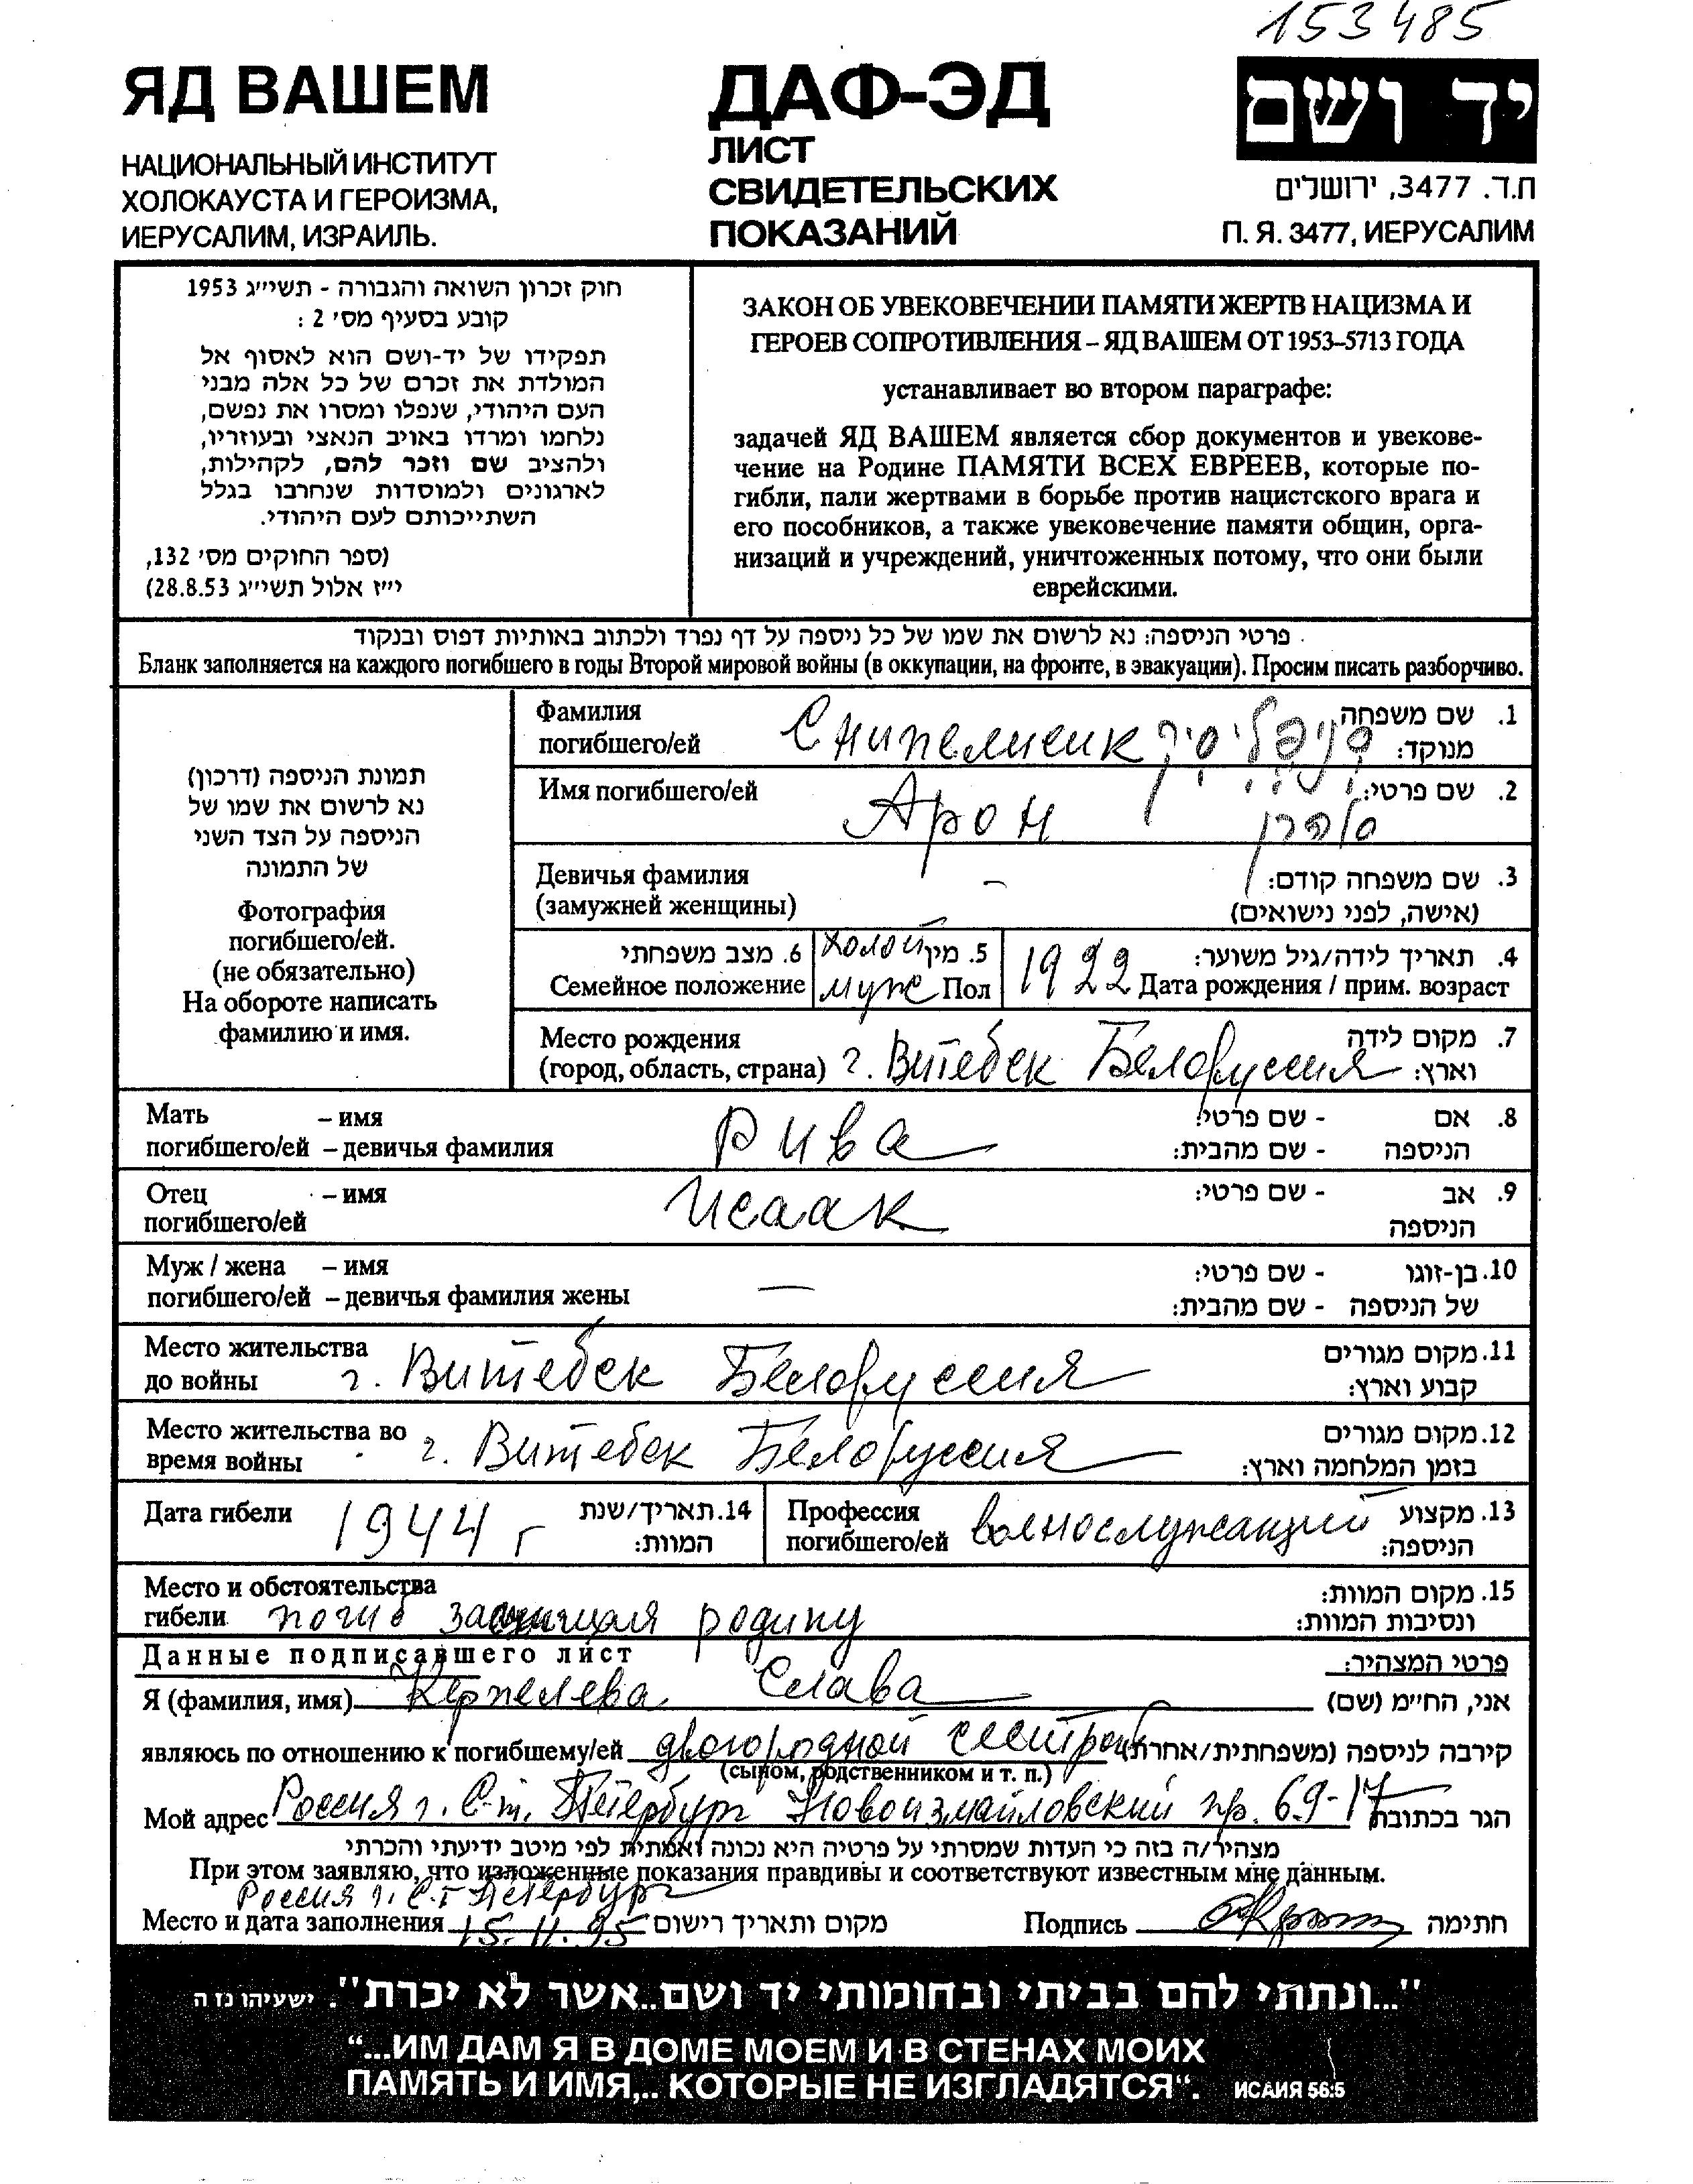 153485
ЯД ВАШЕМ
НАЦИОНАЛЬНЫЙ ИНСТИТУТ
ХОЛОКАУСТА И ГЕРОИЗМА,
ИЕРУСАЛИМ, ИЗРАИЛЬ.
ДАФ-ЭД
ЛИСТ
СВИДЕТЕЛЬСКИХ
ПОКАЗАНИЙ
יד ושם
ת.ד. 3477, ירושלים
П. Я. 3477, ИЕРУСАЛИМ
חוק זכרון השואה והגבורה - תשי״ג 1953
קובע בסעיף מס׳ 2 :
תפקידו של יד-ושם הוא לאסוף אל
המולדת את זכרם של כל אלה מבני
העם היהודי, שנפלו ומסרו את נפשם,
נלחמו ומרדו באויב הנאצי ובעוזריו,
ולהציב שם וזכר להם, לקהילות,
לארגונים ולמוסדות שנחרבו בגלל
השתייכותם לעם היהודי.
(ספר החוקים מס׳ 132,
י״ז אלול תשי״ג 28.8.53)
ЗАКОН ОБ УВЕКОВЕЧЕНИИ ПАМЯТИ ЖЕРТВ НАЦИЗМА И
ГЕРОЕВ СОПРОТИВЛЕНИЯ – ЯД ВАШЕМ ОТ 1953–5713 ГОДА
устанавливает во втором параграфе:
задачей ЯД ВАШЕМ является сбор документов и увекове-
чение на Родине ПАМЯТИ ВСЕХ ЕВРЕЕВ, которые по-
гибли, пали жертвами в борьбе против нацистского врага и
его пособников, а также увековечение памяти общин, орга-
низаций и учреждений, уничтоженных потому, что они были
еврейскими.
פרטי הניספה: נא לרשום את שמו של כל ניספה על דף נפרד ולכתוב באותיות דפוס ובנקוד
Бланк заполняется на каждого погибшего в годы Второй мировой войны (в оккупации, на фронте, в эвакуации). Просим писать разборчиво.
תמונת הניספה (דרכון)
נא לרשום את שמו של
הניספה על הצד השני
של התמונה
Фотография
погибшего/ей.
(не обязательно)
На обороте написать
фамилию и имя.
Фамилия Снипелисик 1. שם משפחה
погибшего/ей מנוקד:
Имя погибшего/ей Арон אהרן 2. שם פרטי:
Девичья фамилия – 3. שם משפחה קודם:
(замужней женщины) (אישה, לפני נישואים)
6. מצב משפחתי холой 5. מין 1922 4. תאריך לידה/גיל משוער:
Семейное положение муж Пол Дата рождения / прим. возраст
Место рождения 7. מקום לידה
(город, область, страна) г. Витебск Белоруссия וארץ:
Мать – имя Рива 8. אם - שם פרטי:
погибшего/ей – девичья фамилия הניספה - שם מהבית:
Отец – имя Исаак 9. אב - שם פרטי:
погибшего/ей הניספה
Муж / жена – имя — 10. בן-זוגו - שם פרטי:
погибшего/ей – девичья фамилия жены של הניספה - שם מהבית:
Место жительства 11. מקום מגורים
до войны г. Витебск Белоруссия קבוע וארץ:
Место жительства во 12. מקום מגורים
время войны г. Витебск Белоруссия בזמן המלחמה וארץ:
Дата гибели 1944 г 14. תאריך/שנת
המוות:
Профессия военослужащий 13. מקצוע
погибшего/ей הניספה:
Место и обстоятельства 15. מקום המוות:
гибели погиб защищая родину ונסיבות המוות:
Данные подписавшего лист פרטי המצהיר:
Я (фамилия, имя) Керпелева Слава אני, הח״מ (שם)
являюсь по отношению к погибшему/ей двоюродной сестрой קירבה לניספה (משפחתית/אחרת)
(сыном, родственником и т. п.)
Мой адрес Россия г. С-т. Петербург Новоизмайловский пр. 69-17 הגר בכתובת
מצהיר/ה בזה כי העדות שמסרתי על פרטיה היא נכונה ואמתית לפי מיטב ידיעתי והכרתי
При этом заявляю, что изложенные показания правдивы и соответствуют известным мне данным.
Россия г. С.т Петербург
Место и дата заполнения 15.11.95 מקום ותאריך רישום Подпись חתימה
"...ונתתי להם בביתי ובחומותי יד ושם..אשר לא יכרת". ישעיהו נו ה
“...ИМ ДАМ Я В ДОМЕ МОЕМ И В СТЕНАХ МОИХ
ПАМЯТЬ И ИМЯ,.. КОТОРЫЕ НЕ ИЗГЛАДЯТСЯ“. ИСАИЯ 56:5